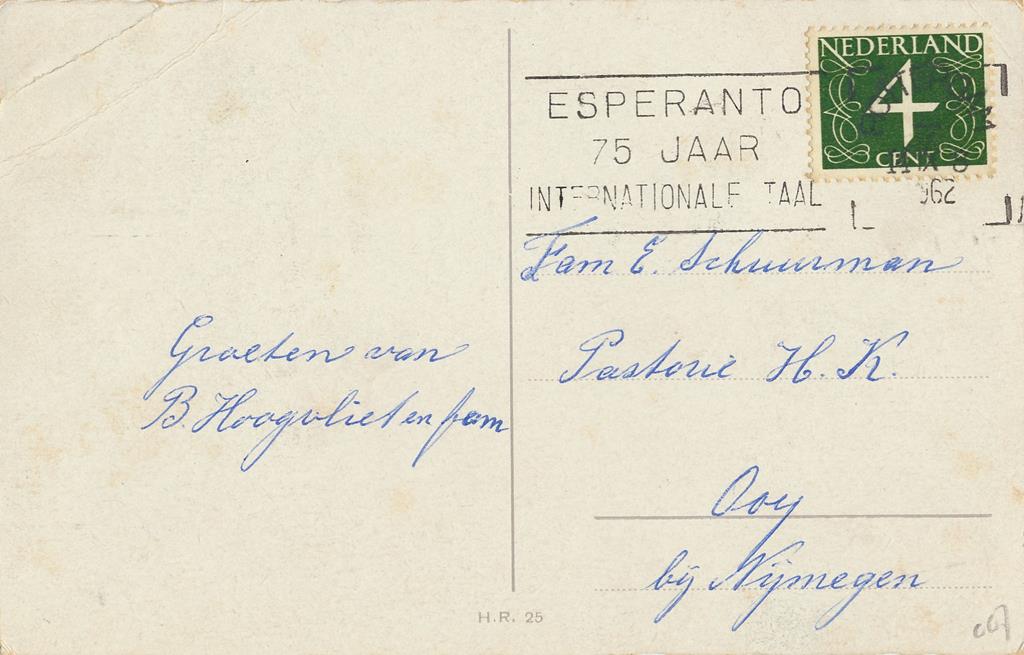 NEDERLAND
4
CENT
ESPERANTO
75 JAAR
INTERNATIONALE TAAL
962
Fam E. Schuurman
Pastorie H. K.
Ooy
bij Nijmegen
Groeten van
B. Hoogvliet en fam
H.R. 25